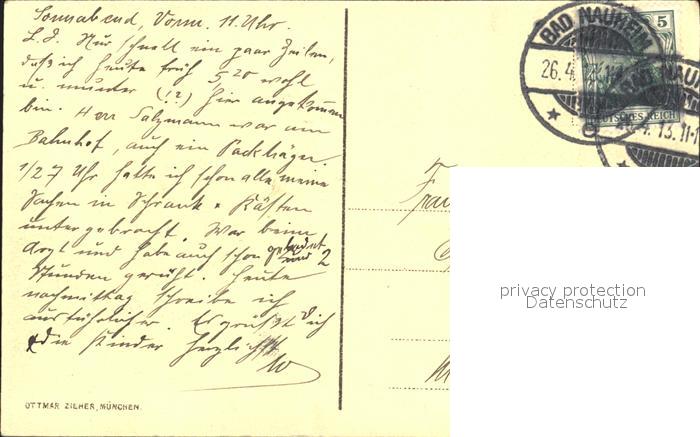 Sonnabend, Vorm. 11 Uhr.
L. D. Nur schnell ein paar Zeilen,
daß ich heute früh 5 20 wohl
u. munter (!?) hier angekommen
bin. Herr Salzmann war am
Bahnhof, auch ein Packträger.
1/2 7 Uhr hatte ich schon alle meine
Sachen in Schrank u Kästen
untergebracht. War beim
Arzt und habe auch schon gebadet
und 2
Stunden geruht. Heute
nachmittag schreibe ich
ausführlicher. Es grüßt Dich
die Kinder herzlichst
W
OTTMAR ZIEHER, MÜNCHEN.
BAD NAUHEIM
26.4.
5
DEUTSCHES REICH
BAD NAU
4. 13. 11-1
Frau
privacy protection
Datenschutz